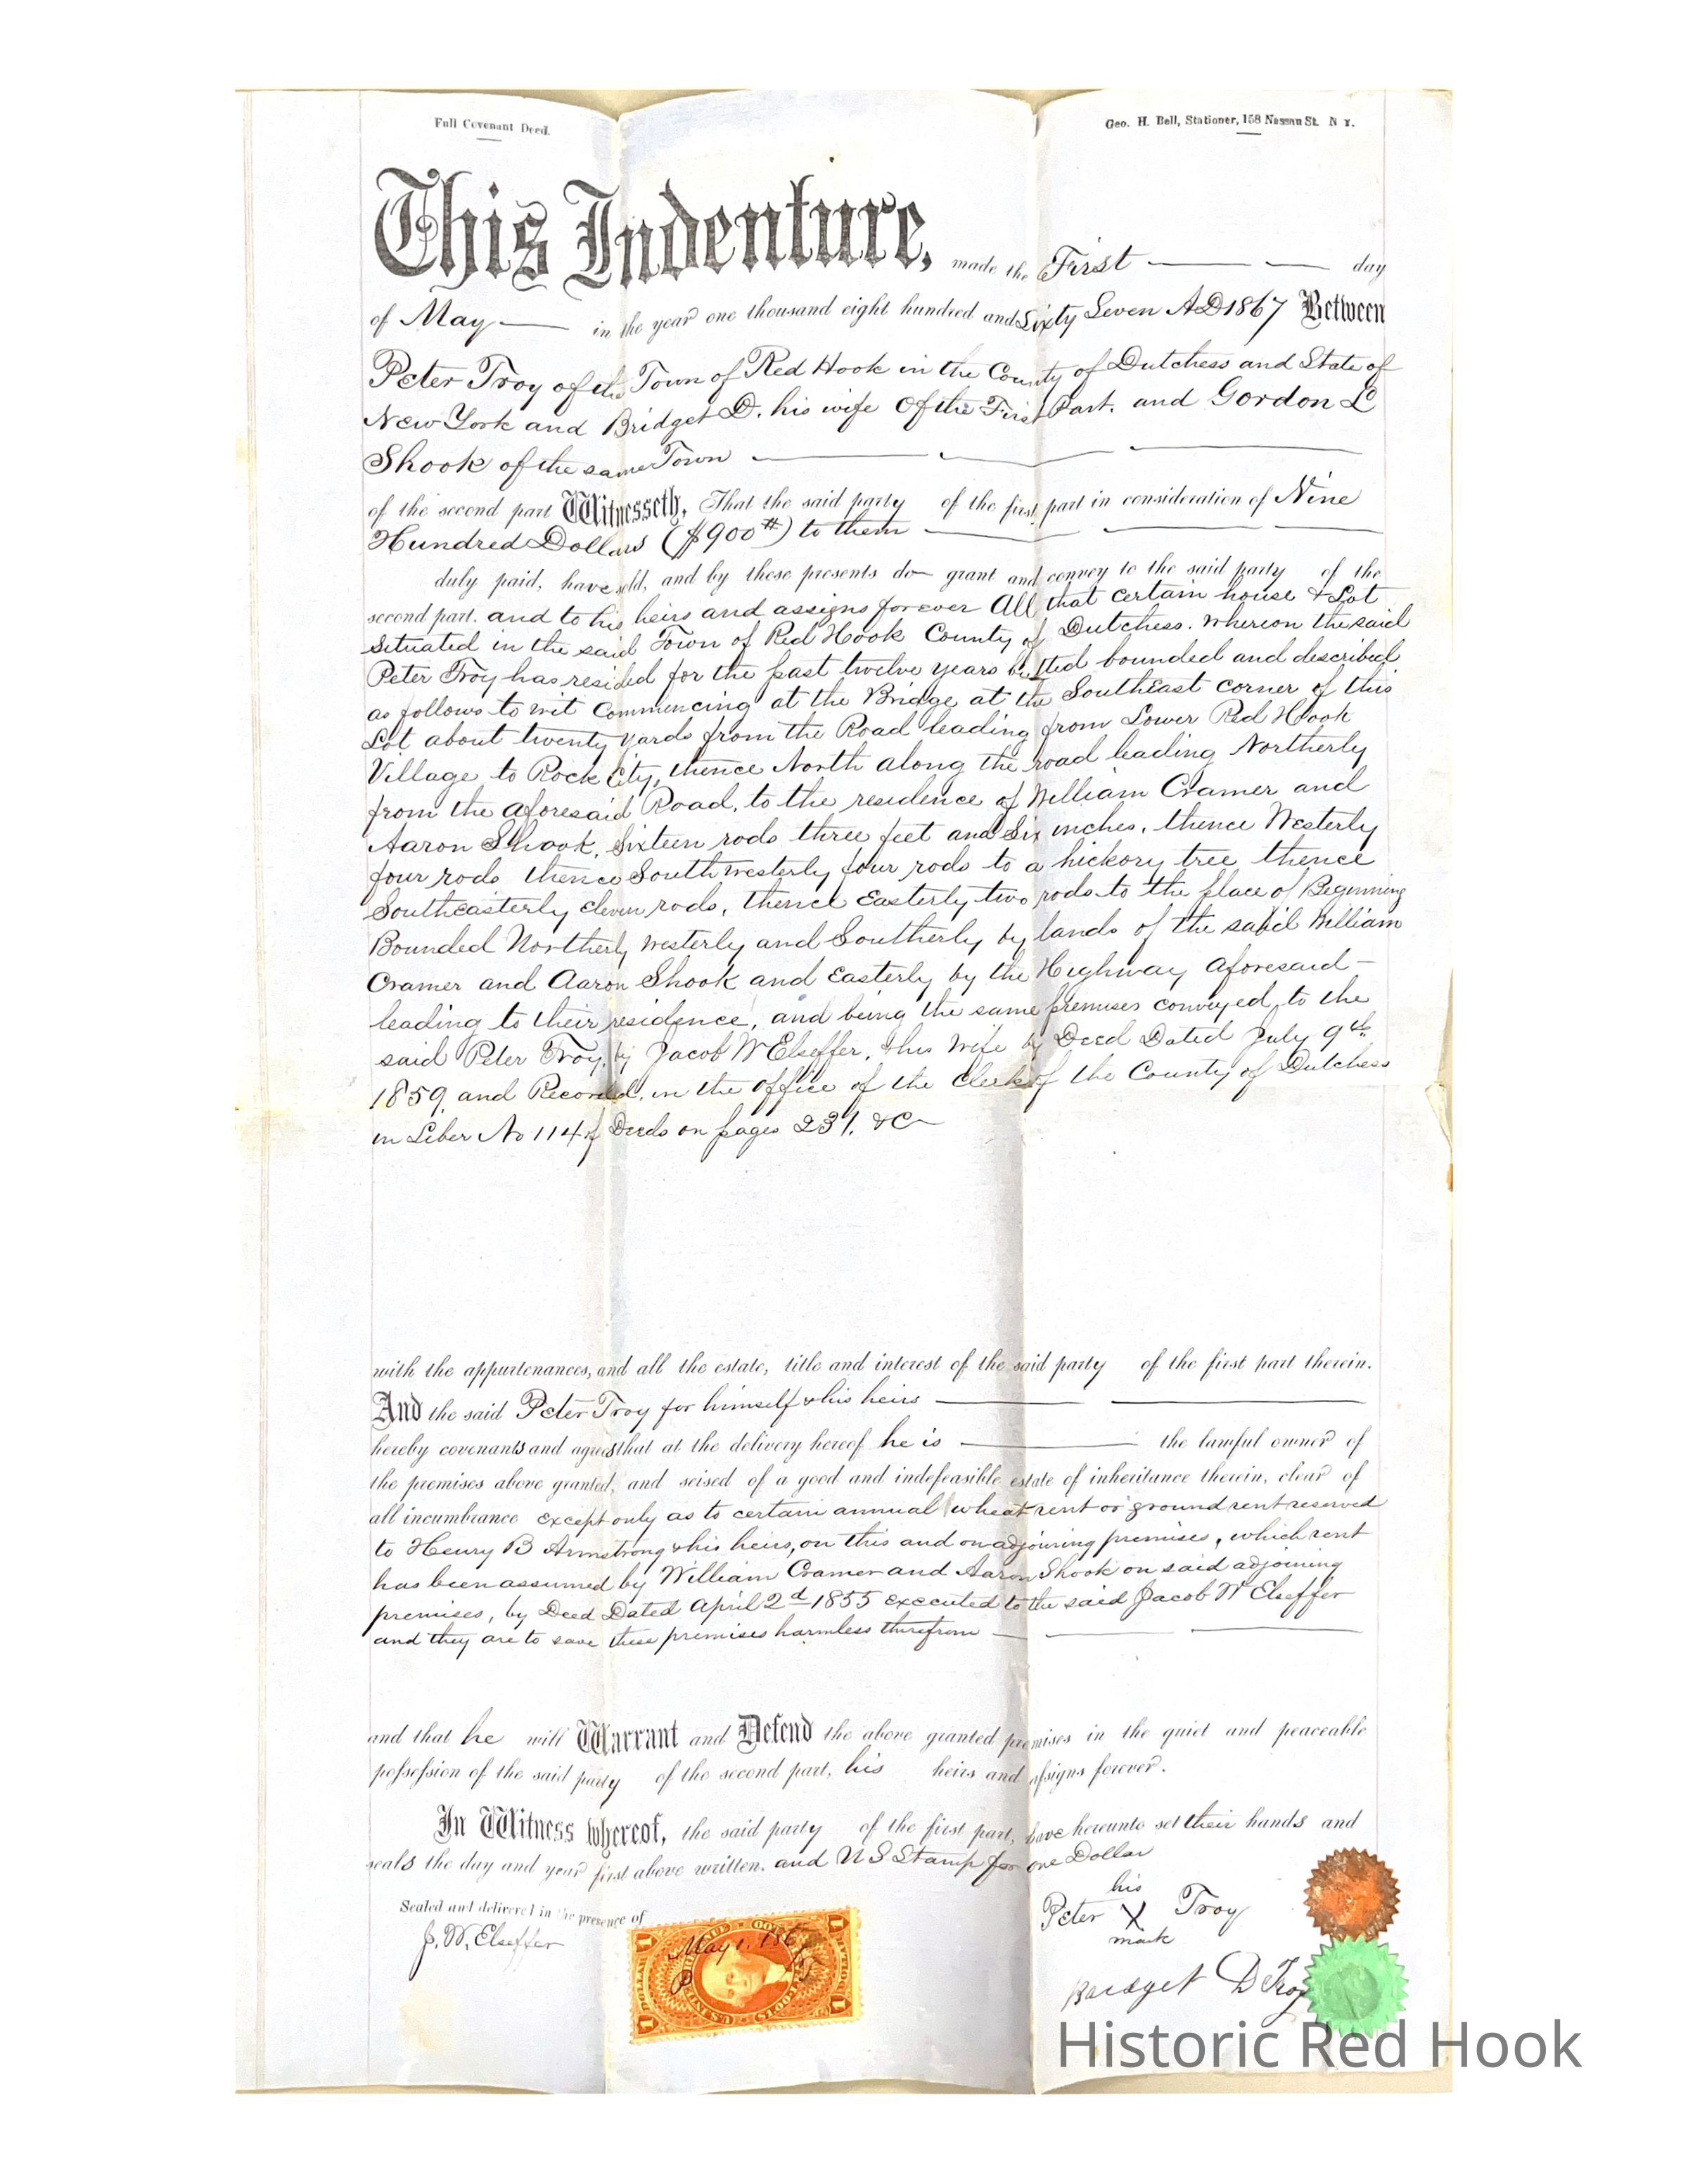 Full Covenant Deed.
Geo. H. Bell, Stationer, 158 Nassau St. N Y.
This Indenture, made the First day
of May in the year one thousand eight hundred and Sixty Seven AD 1867 Between
Peter Troy of the Town of Red Hook in the County of Dutchess and State of
New York and Bridget D. his wife Of the First Part. and Gordon L
Shook of the same Town
of the second part Witnesseth, That the said party of the first part in consideration of Nine
Hundred Dollars ($900#) to them
duly paid, have sold, and by these presents do grant and convey to the said party of the
second part. and to his heirs and assigns forever All that certain house & Lot
Situated in the said Town of Red Hook County of Dutchess. Wherion the said
Peter Troy has resided for the past twelve years butted bounded and described
as follows to wit Commencing at the Bridge at the SouthEast corner of this
Lot about twenty yards from the Road leading from Lower Red Hook
Village to Rock City, thence North along the road leading Northerly
from the aforesaid Road, to the residence of William Cramer and
Aaron Shook, Sixteen rods three feet and Six inches, thence Westerly
four rods thence Southwesterly four rods to a hickory tree thence
Southeasterly eleven rods, thence Easterly two rods to the place of Beginning
Bounded Northerly Westerly and Southerly by lands of the said William
Cramer and Aaron Shook and Easterly by the Highway aforesaid
leading to their residence, and being the same premises conveyed, to the
said Peter Troy, by Jacob W Elseffer, & his Wife by Deed Dated July 9th
1859, and Recorded, in the Office of the Clerk of the County of Dutchess
in Liber No 114 of Deeds on pages 231. &C
with the appurtenances, and all the estate, title and interest of the said party of the first part therein.
And the said Peter Troy for himself & his heirs
hereby covenants and agrees that at the delivery hereof he is the lawful owner of
the premises above granted, and seised of a good and indefeasible estate of inheritance therein, clear of
all incumbrance except only as to certain annual wheat rent or ground rent reserved
to Henry B Armstrong & his heirs, on this and on adjoining premises, which rent
has been assumed by William Cramer and Aaron Shook on said adjoining
premises, by Deed Dated April 2d 1855 executed to the said Jacob W Elseffer
and they are to save these premises harmless therefrom
and that he will Warrant and Defend the above granted premises in the quiet and peaceable
possession of the said party of the second part, his heirs and assigns forever.
In Witness whereof, the said party of the first part, have hereunto set their hands and
seals the day and year first above written. and U S Stamp for one Dollar
Sealed and delivered in the presence of
J. W. Elseffer
May 1. 1867
his
Peter X Troy
mark
Bridget D Troy
Historic Red Hook